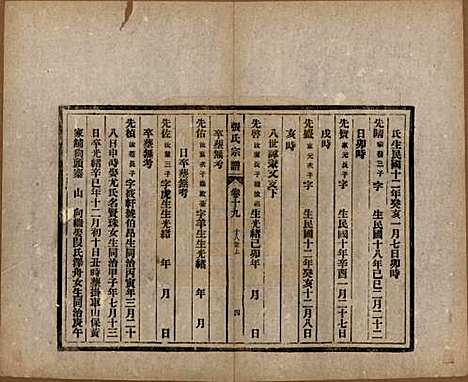 氏生民國十二年癸亥一月七日卯時
先晴 字 生民國十八年己巳二月二十二
日卯時
先寶 家元次子 字 生民國十年辛酉一月二十七日
戌時
先 家元長子 字 生民國十二年癸亥十二月八日
亥時
八世諱家文亥下
先啓 生光緒己卯年 月 日
張氏宗譜 卷十九 十八 四
卒葬無考
先佑 字羊生生光緒 年 月 日
卒葬無考
先佐 三子 字虎生生光緒 年 月 日
卒葬無考
先楨 長子 字筱軒號伯昌生同治丙寅年三月二十
八日申時娶尤氏名賢珠女生同治甲子年七月十三
日卒光緒辛巳年十二月初十日丑時葬掛車山保黃
家舖狗頭 山 向繼娶段氏澤舟女生同治庚午